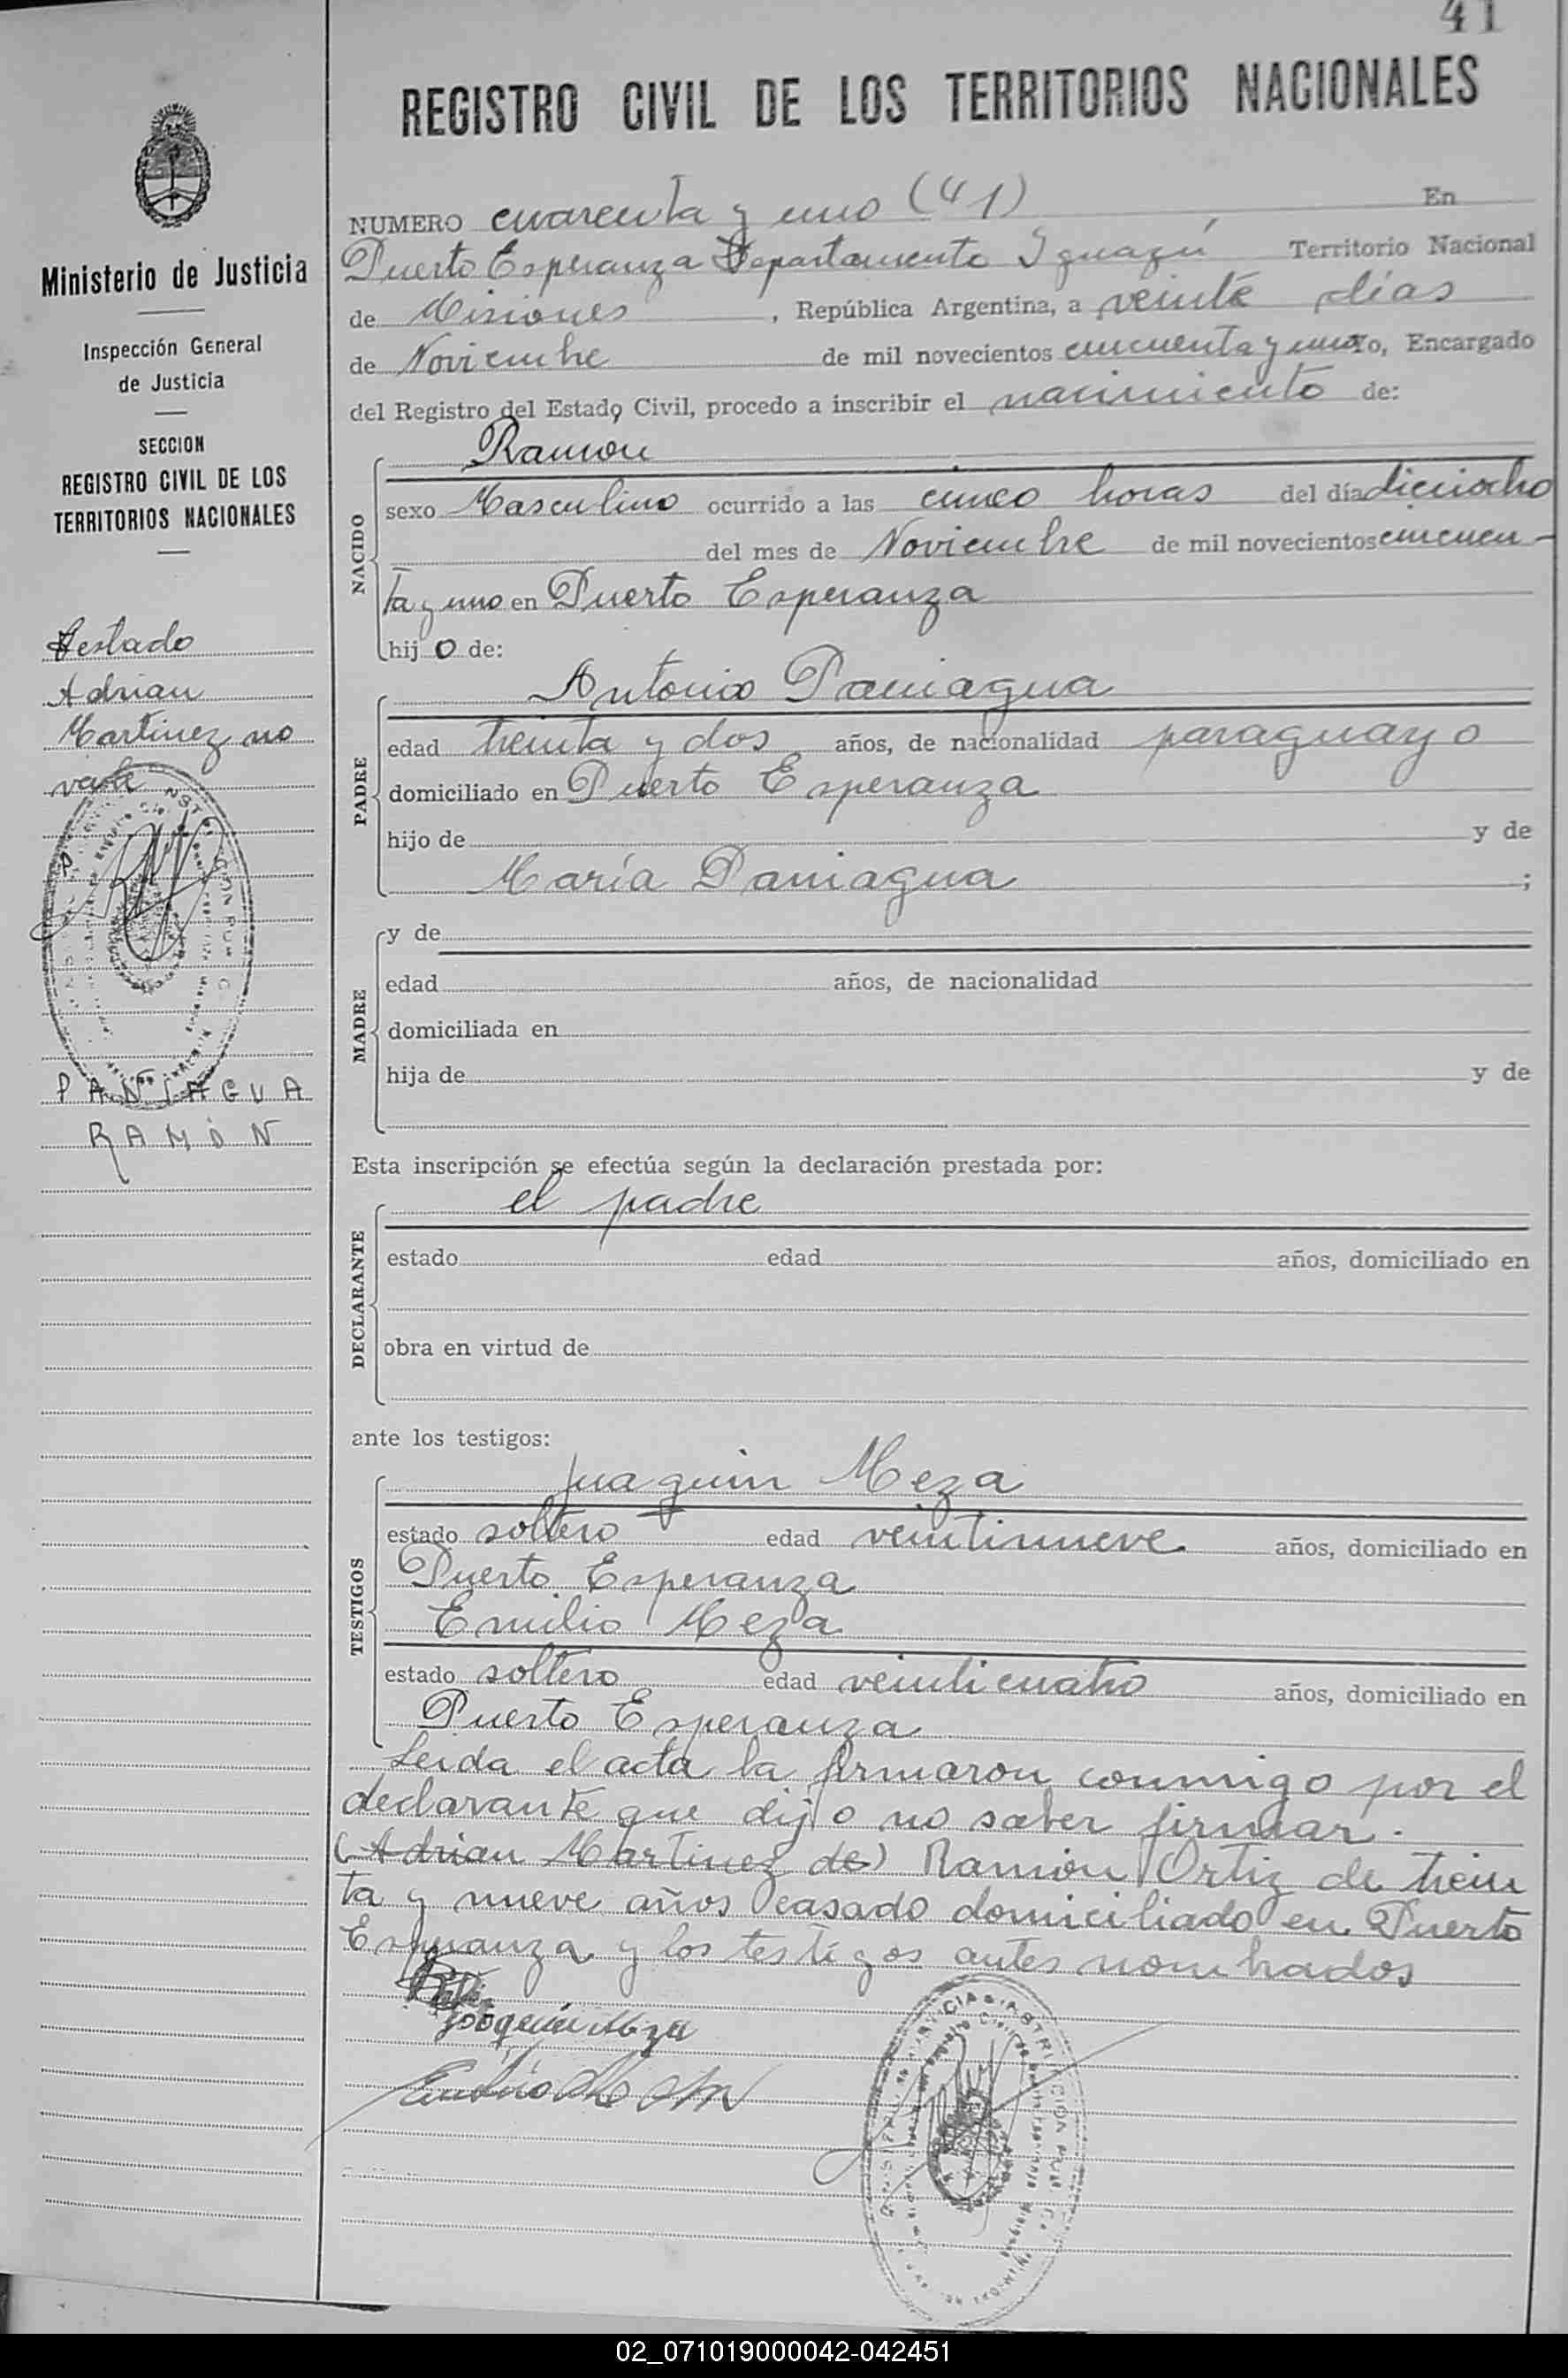 41
REGISTRO CIVIL DE LOS TERRITORIOS NACIONALES
NUMERO cuarenta y uno (41) En
Puerto Esperanza Departamento Iguazú Territorio Nacional
de Misiones, República Argentina, a veinte dias
de Noviembre de mil novecientos cincuenta y uno Yo, Encargado
del Registro del Estado Civil, procedo a inscribir el nacimiento de:
NACIDO
Ramon
sexo Masculino ocurrido a las cinco horas del día dieciocho
del mes de Noviembre de mil novecientos cincuen-
ta y uno en Puerto Esperanza
hijo de:
PADRE
Antonio Paniagua
edad treinta y dos años, de nacionalidad paraguayo
domiciliado en Puerto Esperanza
hijo de y de
María Paniagua ;
MADRE
y de
edad años, de nacionalidad
domiciliada en
hija de y de
Esta inscripción se efectúa según la declaración prestada por:
DECLARANTE
el padre
estado edad años, domiciliado en
obra en virtud de
ante los testigos:
TESTIGOS
Juaquin Meza
estado soltero edad veintinueve años, domiciliado en
Puerto Esperanza
Emilio Meza
estado soltero edad veinticuatro años, domiciliado en
Puerto Esperanza
Leida el acta la firmaron conmigo por el
declarante que dijo no saber firmar.
(Adrian Martinez de) Ramón Ortiz de trein
ta y nueve años casado domiciliado en Puerto
Esperanza y los testigos antes nombrados
Joaquin Meza
Ministerio de Justicia
Inspección General
de Justicia
SECCION
REGISTRO CIVIL DE LOS
TERRITORIOS NACIONALES
Testado
Adrian
Martinez no
vale
PANIAGUA
RAMÓN
02_071019000042-042451